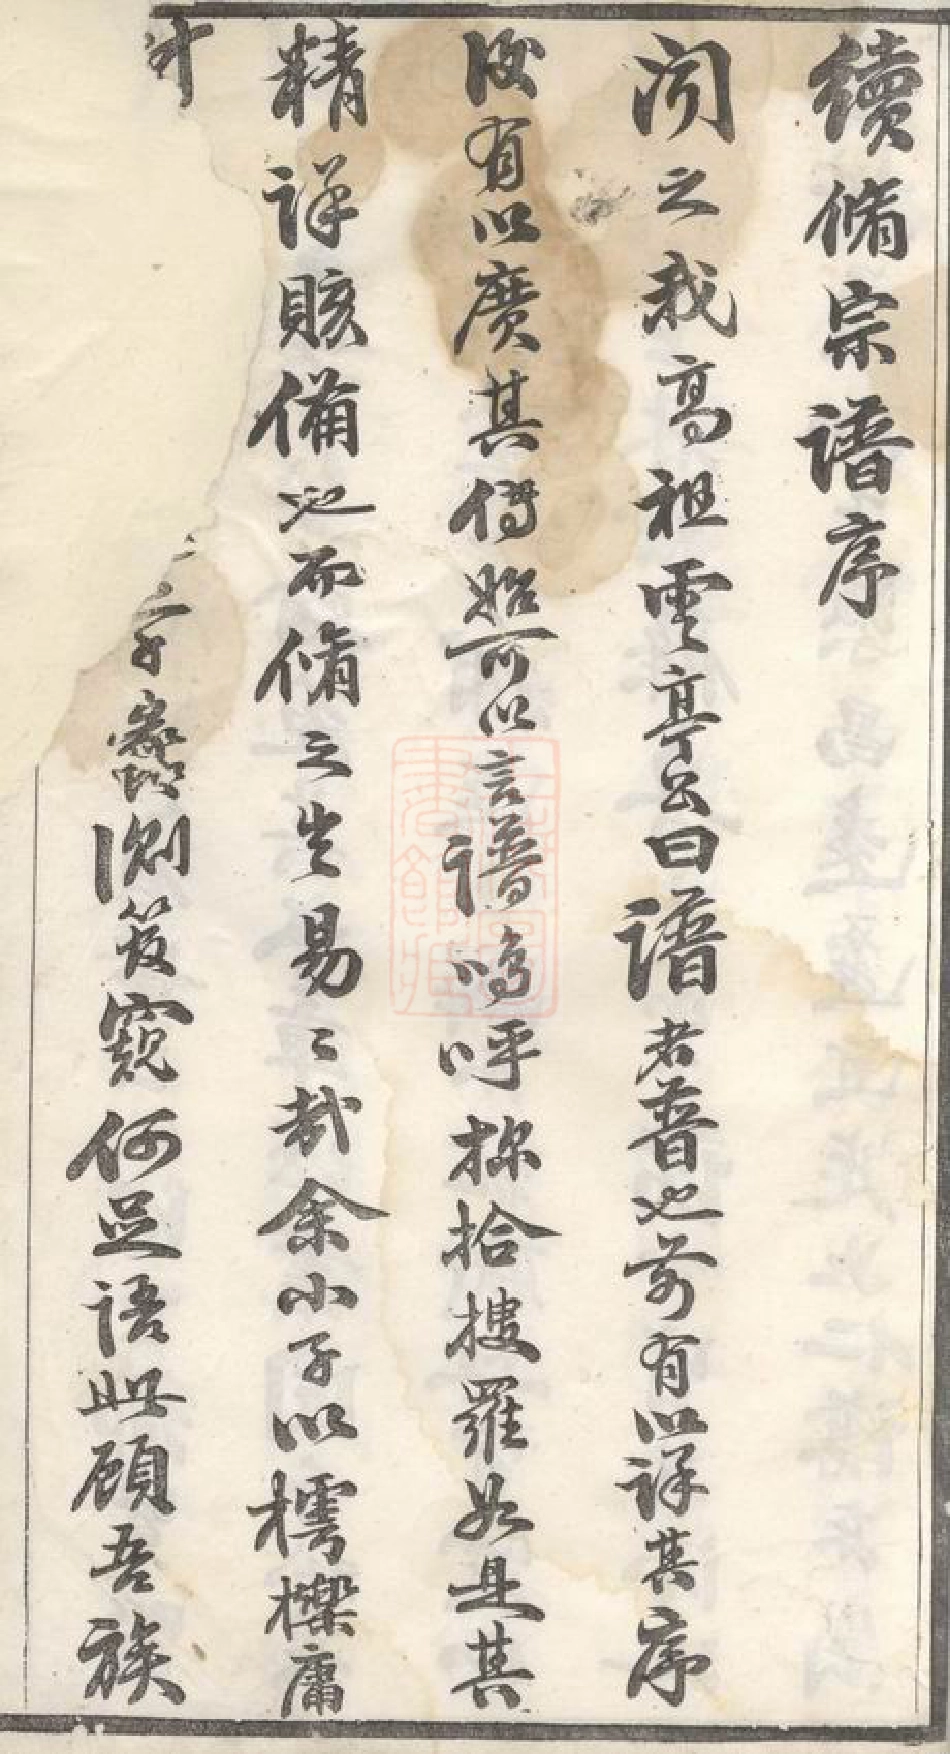 續脩宗譜序
聞之我高祖雲亭公曰譜者普也前有以詳其序
後有以廣其傳始可以言譜嗚呼採拾搜羅如是其
精詳賅備也而脩之豈易〻哉余小子以樗櫟庸
才蠡測管窺何足語此顧吾族